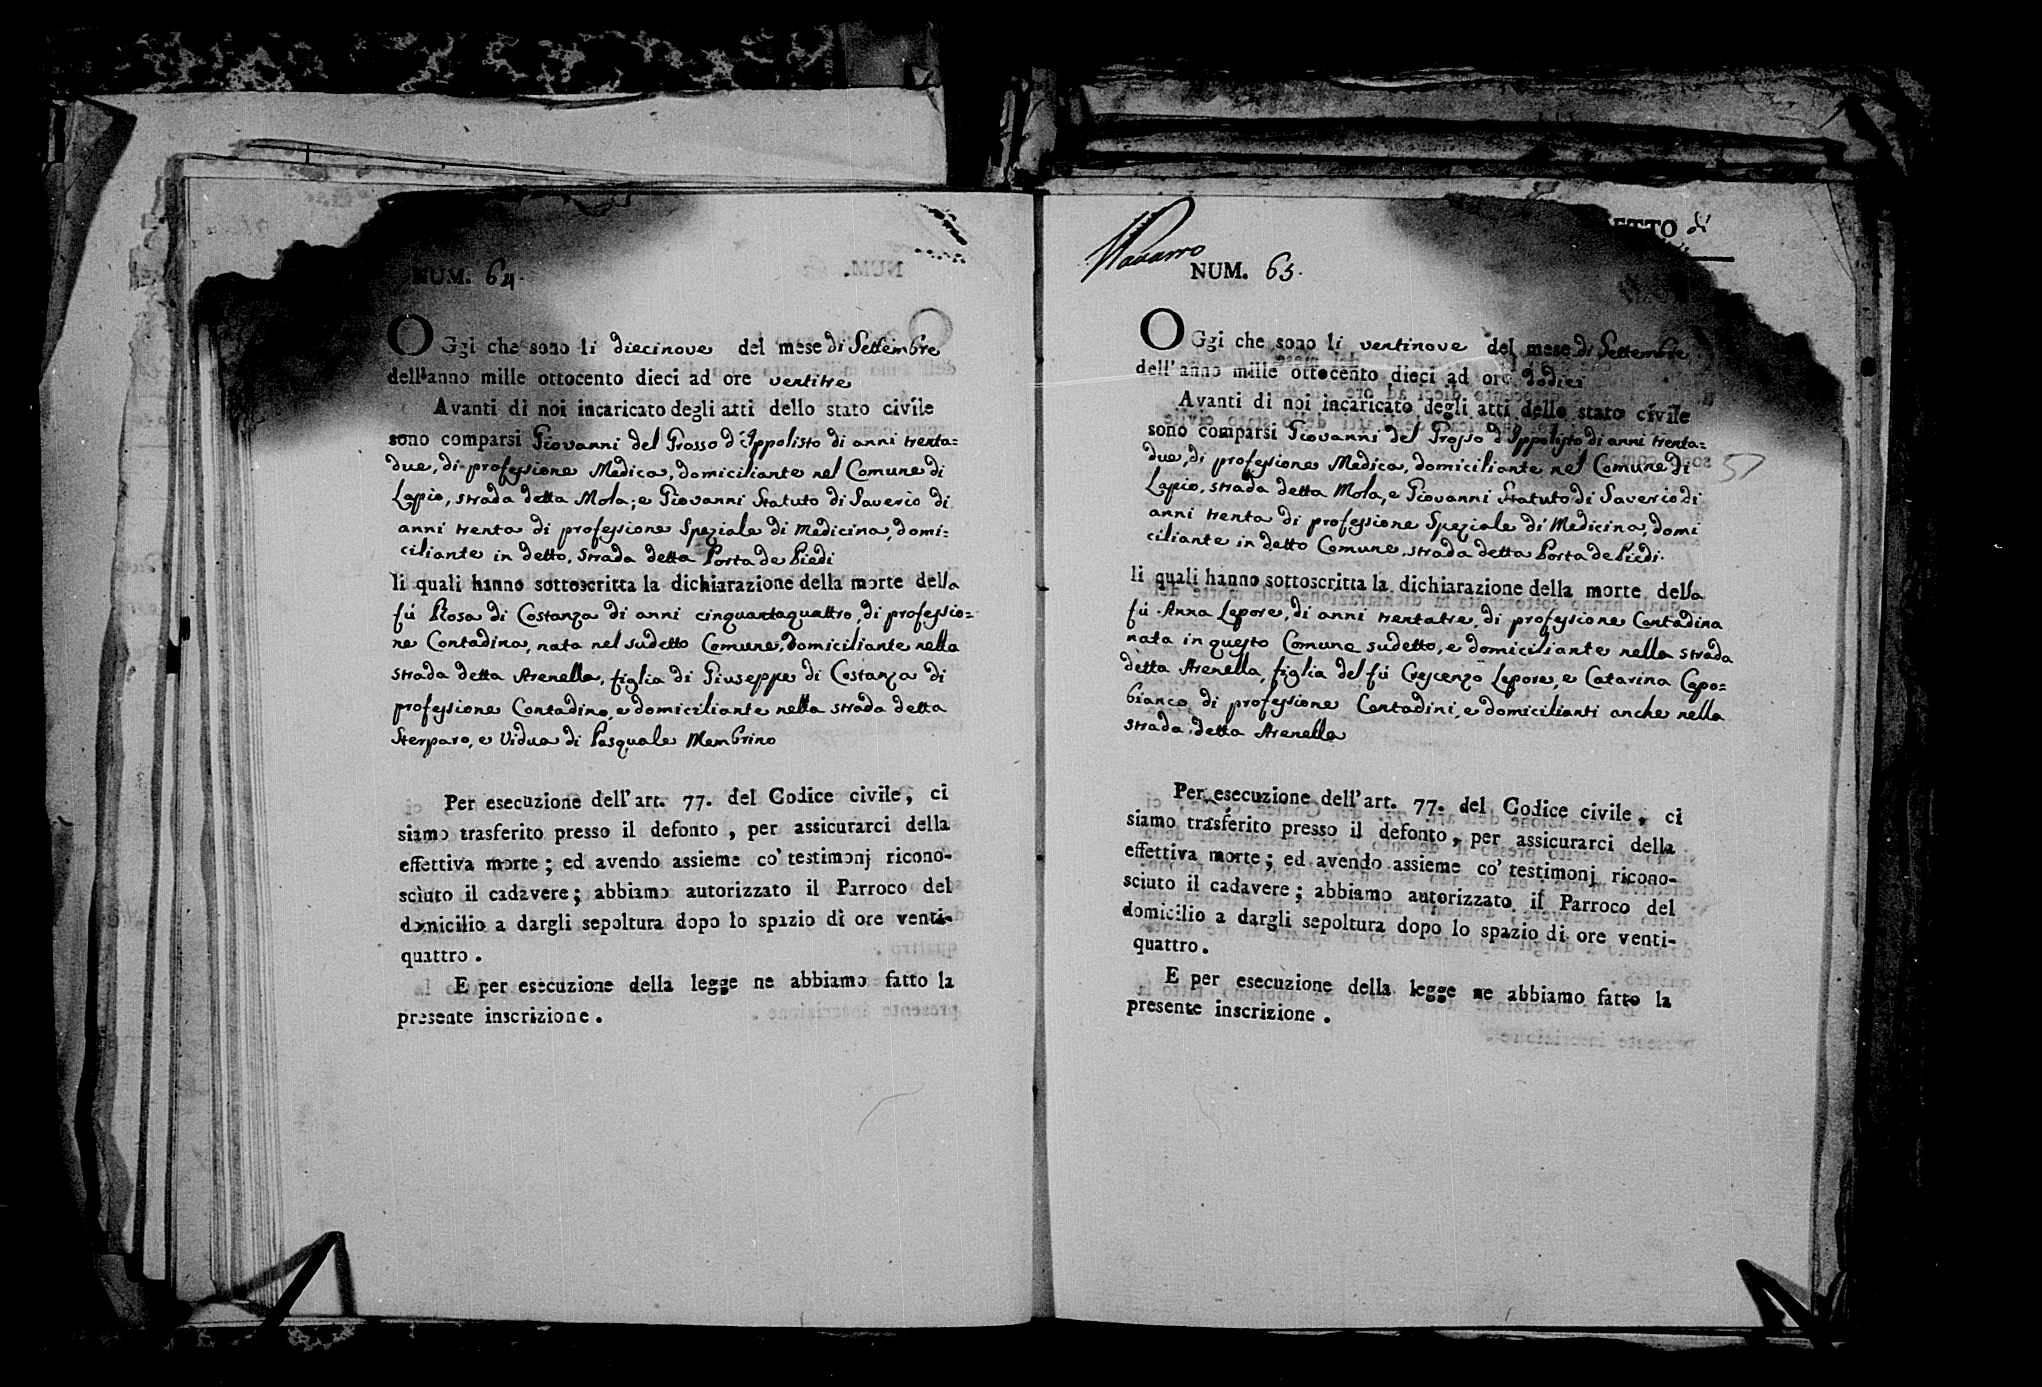 NUM. 64.
OGgi che sono li diecinove del mese di Settembre
dell'anno mille ottocento dieci ad ore ventitre
Avanti di noi incaricato degli atti dello stato civile
sono comparsi Giovanni del Grosso d'Ippolisto di anni trenta=
due, di professione Medico, domiciliante nel Comune di
Lapio, strada detta Mola; e Giovanni Statuto di Saverio di
anni trenta di professione Speziale di Medicina, domi=
ciliante in detto, strada detta Porta de Piedi
li quali hanno sottoscritta la dichiarazione della morte della
fú Rosa di Costanza di anni cinquantaquattro, di professio=
ne Contadina, nata nel sudetto Comune, domiciliante nella
strada detta Arenella, figlia di Giuseppe di Costanza di
professione Contadino, e domiciliante nella strada detta
Sterparo, e Vidua di Pasquale Membrino
Per esecuzione dell'art. 77. del Codice civile, ci
siamo trasferito presso il defonto, per assicurarci della
effettiva morte; ed avendo assieme co' testimonj ricono-
sciuto il cadavere; abbiamo autorizzato il Parroco del
domicilio a dargli sepoltura dopo lo spazio di ore venti-
quattro.
E per esecuzione della legge ne abbiamo fatto la
presente inscrizione.
Navarro
ETTO di
NUM. 65.
OGgi che sono li ventinove del mese di Settembre
dell'anno mille ottocento dieci ad ore dodici
Avanti di noi incaricato degli atti dello stato civile
sono comparsi Giovanni del Grosso d'Ippolisto di anni trenta=
due, di professione Medico, domiciliante nel Comune di
57
Lapio, strada detta Mola, e Giovanni Statuto di Saverio di
anni trenta di professione Speziale di Medicina, domi
ciliante in detto Comune, strada detta Porta de Piedi.
li quali hanno sottoscritta la dichiarazione della morte della
fú Anna Lepore, di anni trentatre, di professione Contadina
nata in questo Comune sudetto, e domiciliante nella strada
detta Arenella, figlia del fú Crescenzo Lepore, e Catarina Capo=
bianco di professione Contadini, e domicilianti anche nella
strada detta Arenella
Per esecuzione dell'art. 77. del Codice civile, ci
siamo trasferito presso il defonto, per assicurarci della
effettiva morte; ed avendo assieme co' testimonj ricono-
sciuto il cadavere; abbiamo autorizzato il Parroco del
domicilio a dargli sepoltura dopo lo spazio di ore venti-
quattro.
E per esecuzione della legge ne abbiamo fatto la
presente inscrizione.